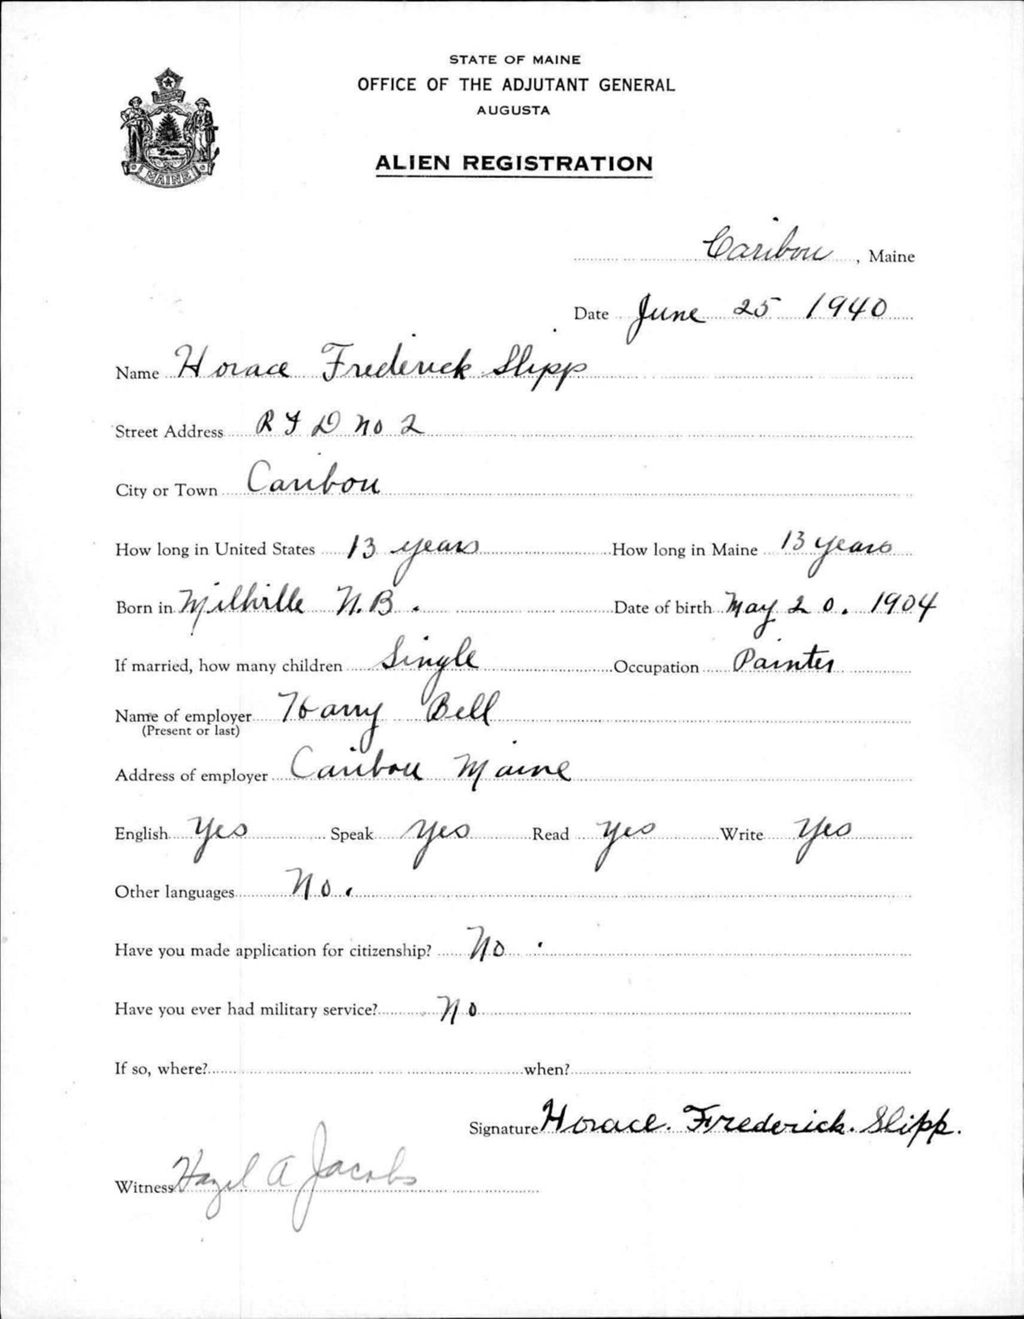 STATE OF MAINE
OFFICE OF THE ADJUTANT GENERAL
AUGUSTA
ALIEN REGISTRATION
MAINE
Caribou, Maine
Date June 25 1940
Name Horace Frederick Slipp
Street Address R F D No 2
City or Town Caribou
How long in United States 13 years How long in Maine 13 years
Born in Millville N.B. Date of birth May 20. 1904
If married, how many children Single Occupation Painter
Name of employer Harry Bell
(Present or last)
Address of employer Caribou Maine
English Yes Speak Yes Read Yes Write Yes
Other languages No.
Have you made application for citizenship? No.
Have you ever had military service? No
If so, where? when?
Signature Horace. Frederick. Slipp.
Witness Hazel A Jacobs